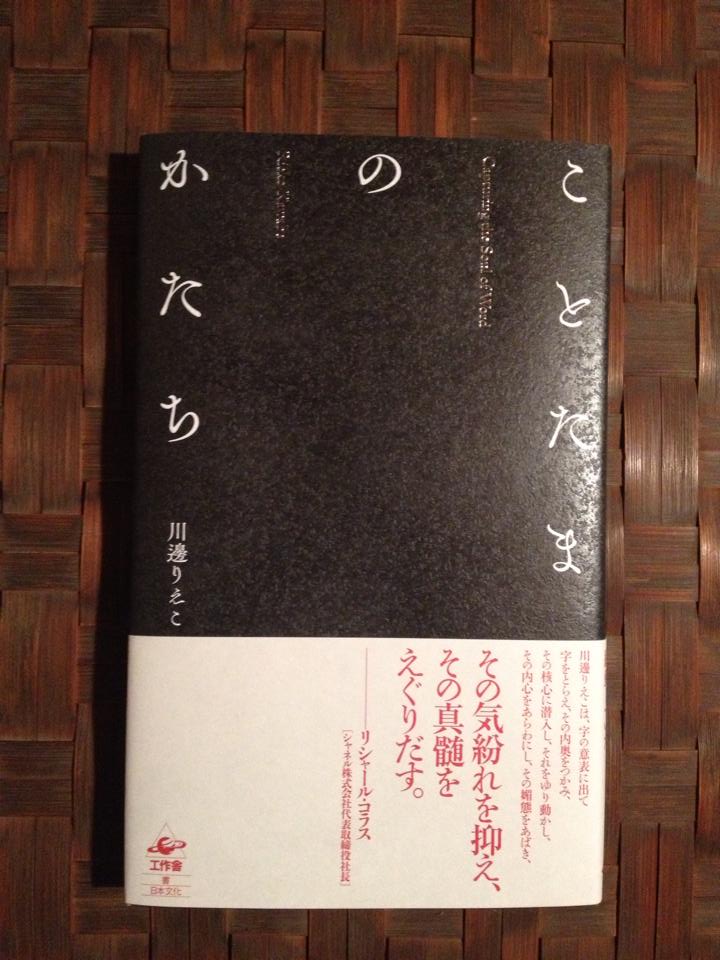 ことたま
の
かたち
Capturing the Soul of Word
川邊りえこ
川邊りえこは、字の意表に出て
字をとらえ、その内奥をつかみ、
その核心に潜入し、それをゆり動かし、
その内心をあらわにし、その媚態をあばき、
その気紛れを抑え、
その真髄を
えぐりだす。
リシャール・コラス
[シャネル株式会社代表取締役社長]
工作舎
書
日本文化